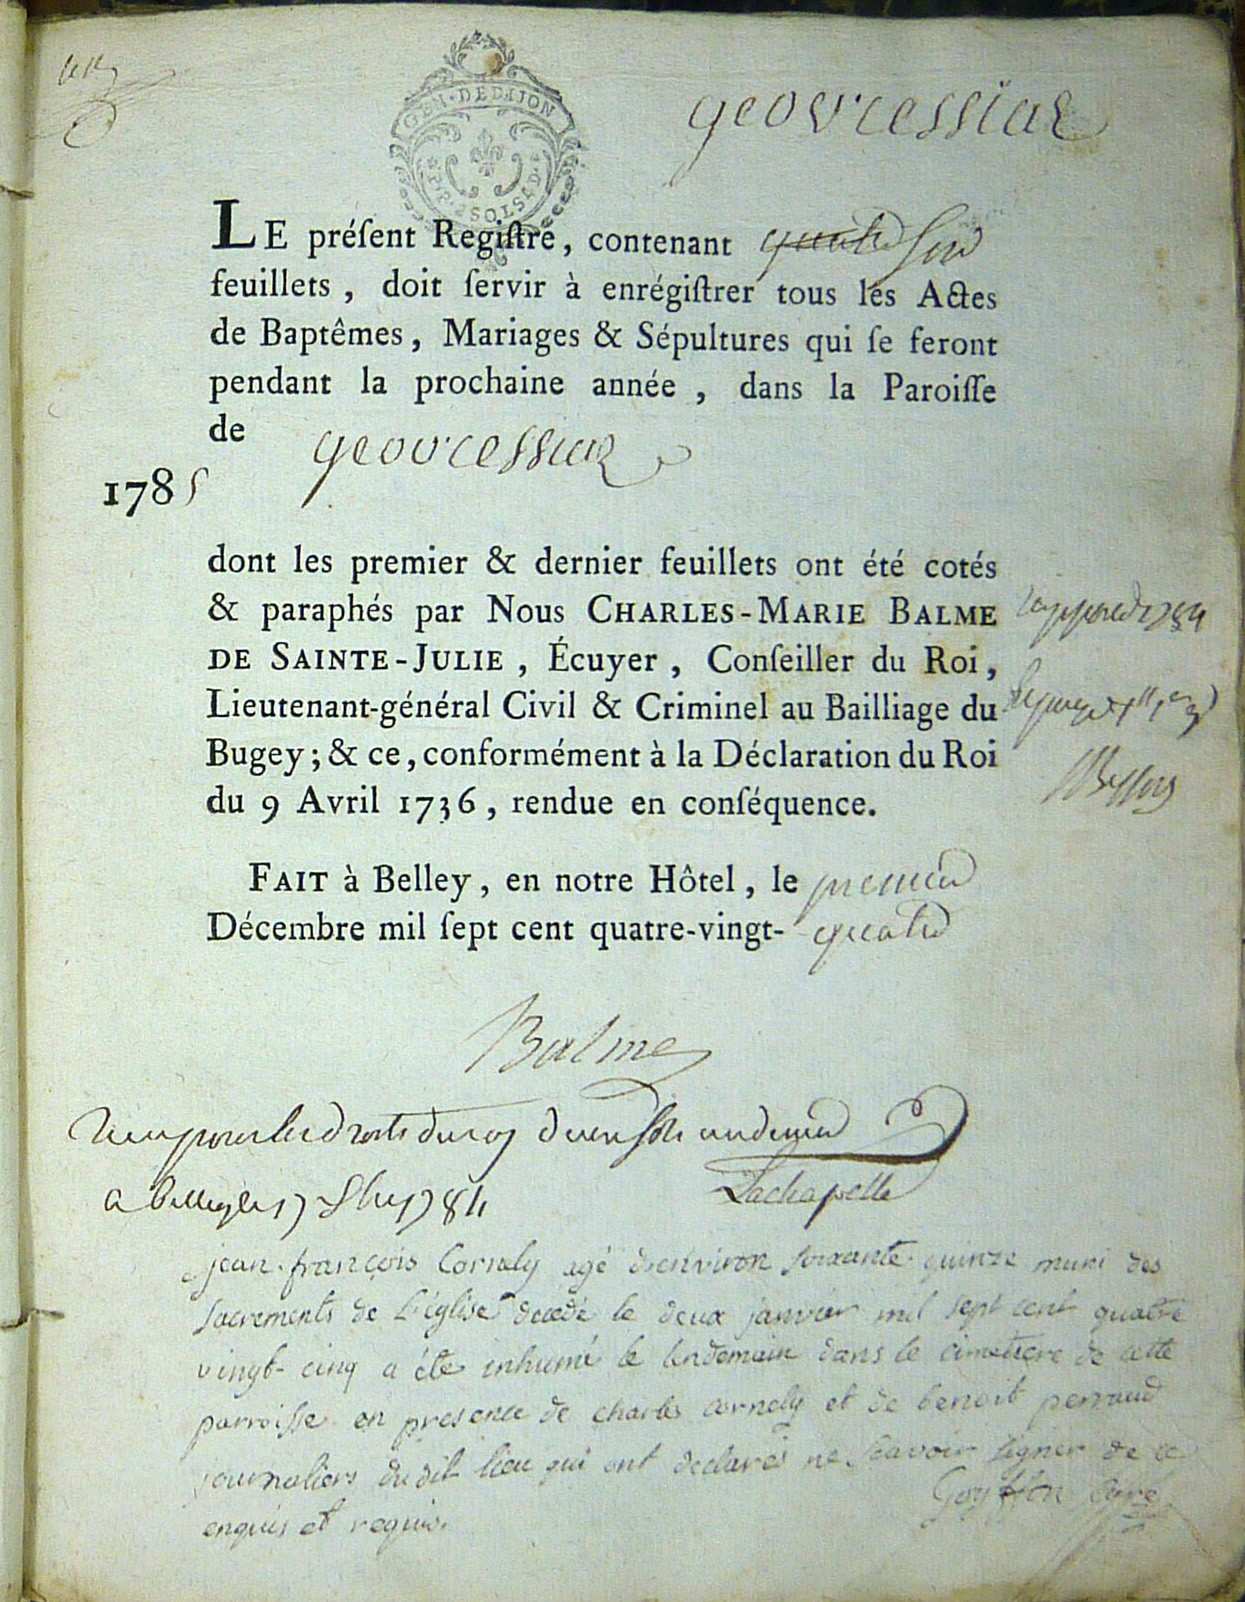 GEN · DE DIJON
geovressiat
LE préſent Regiſtre, contenant
feuillets, doit ſervir à enrégiſtrer tous les Actes
de Baptêmes, Mariages & Sépultures qui ſe feront
pendant la prochaine année, dans la Paroiſſe
de geovressiat
1785
dont les premier & dernier feuillets ont été cotés
& paraphés par Nous CHARLES-MARIE BALME
DE SAINTE-JULIE, Écuyer, Conſeiller du Roi,
Lieutenant-général Civil & Criminel au Bailliage du
Bugey; & ce, conformément à la Déclaration du Roi
du 9 Avril 1736, rendue en conſéquence.
FAIT à Belley, en notre Hôtel, le premier
Décembre mil ſept cent quatre-vingt-quatre
Balme
Lachapelle
jean-françois Cornely agé d'environ soixante-quinze muni des
sacrements de l'église decedé le deux janvier mil sept cent quatre
vingt-cinq a été inhumé le lendemain dans le cimetiere de cette
parroisse en presence de charles cornely et de benoit perraud
journaliers dudit lieu qui ont declarés ne sçavoir signer de ce
enquis et requis. Goyffon Curé